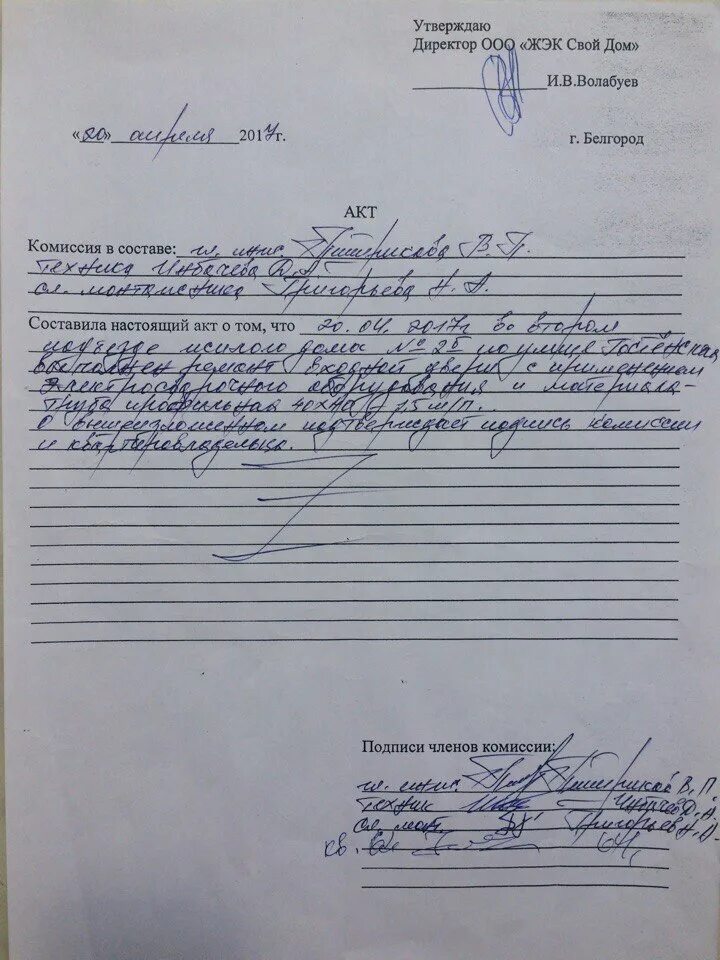 Утверждаю
Директор ООО «ЖЭК Свой Дом»
И.В.Волабуев
«20» апреля 2017г.
г. Белгород
АКТ
Комиссия в составе: гл. инж. В. П.
техника Д. А.
сл. монтажника Григорьева Н. А.
Составила настоящий акт о том, что 20.04.2017г во втором
подъезде жилого дома № 2б по улице Гостёнская
выполнен ремонт входной двери с применением
электросварочного оборудования и материала -
труба профильная 40х40 7,5 м/п.
О вышеизложенном подтверждает подпись комиссии
и квартировладельца.
Подписи членов комиссии:
гл. инж. В. П
техник Д. А.
сл. монт. Григорьев Н. А.
кв.